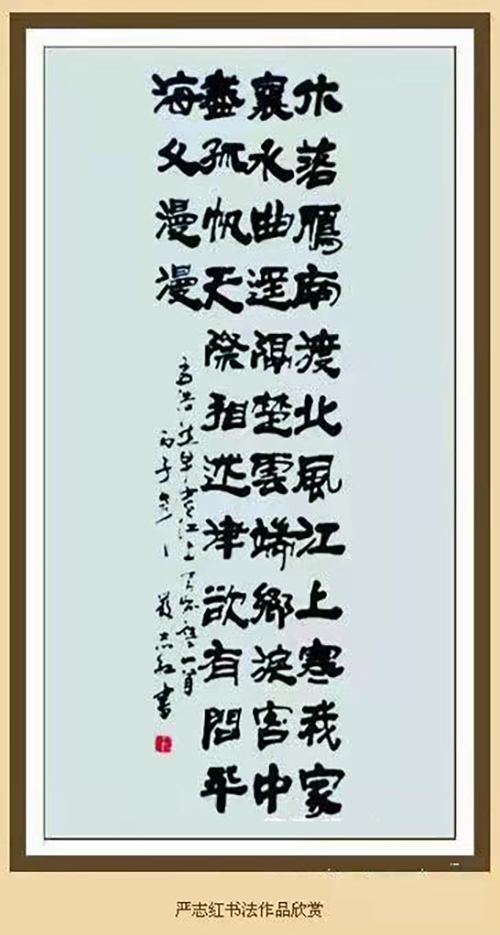 木落鴈南渡北風江上寒我家
襄水曲遥隔楚雲端鄉淚客中
盡孤帆天際相迷津欲有問平
海夕漫漫
孟浩然早寒江上有一首
丙子嚴志红書
严志红书法作品欣赏